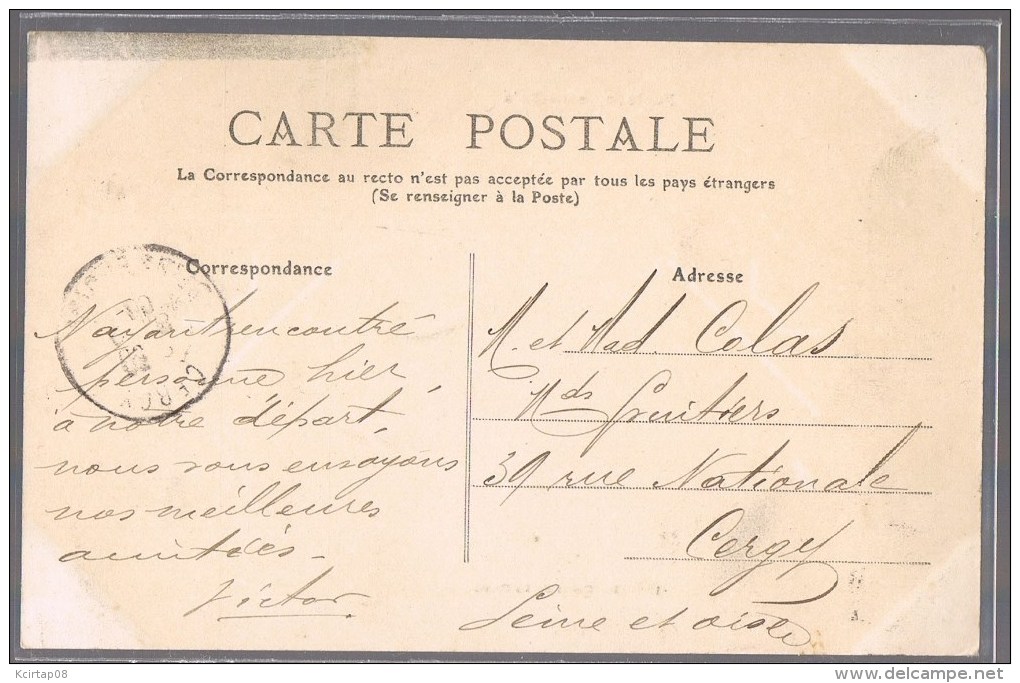 CARTE POSTALE
La Correspondance au recto n'est pas acceptée par tous les pays étrangers
(Se renseigner à la Poste)
Correspondance
N'ayant rencontré
personne hier,
à notre départ,
nous vous envoyons
nos meilleures
amitiés-
Victor
Adresse
M. et Mad. Colas
Mds Fruitiers
39 rue Nationale
Cergy
Seine et Oise
CERGY
Kcirtap08
delcampe.net